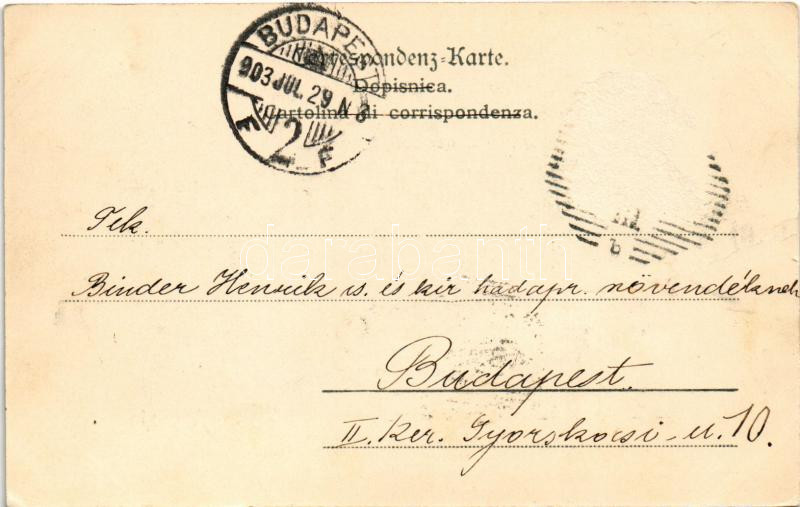 BUDAPEST
903 JUL. 29 N 8
F 2 F
Correspondenz-Karte.
Dopisnica.
Cartolina di corrispondenza.
b
Tek.
darabanth
Binder Henrik cs. és kir hadapr. növendéknek
Budapest.
II. Ker. Gyorskocsi-u. 10.